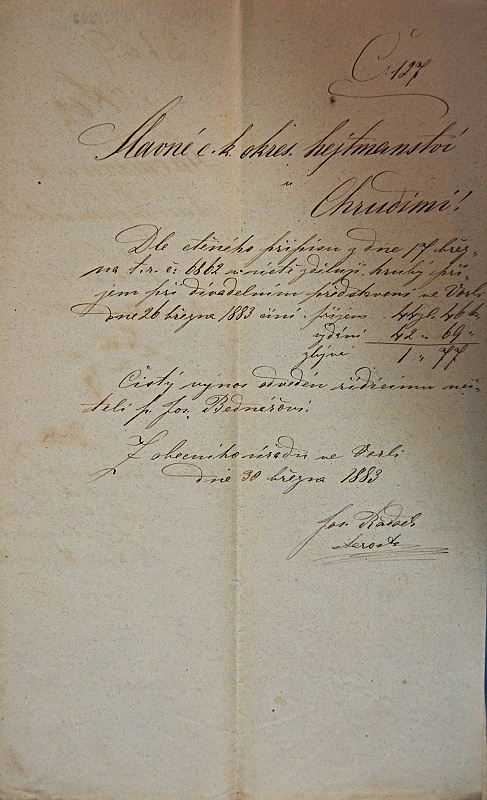 Č. 127
Slavné c. k. okres. hejtmanství
v
Chrudimi!
Dle ctěného přípisu z dne 17 břez-
na t. r. č. 6862 uctě sděluji, hrubý pří-
jem při divadelním představení ve Vorli
dne 26 března 1883 činí příjem 44 zl. 46 k
vydání 42 „ 69 „
zbývá 1 „ 77
Čistý výnos odveden řídícímu uči-
teli p. Jos. Bednářovi.
Z obecního úřadu ve Vorli
dne 30 března 1883
Jos. Kadoch
starosta